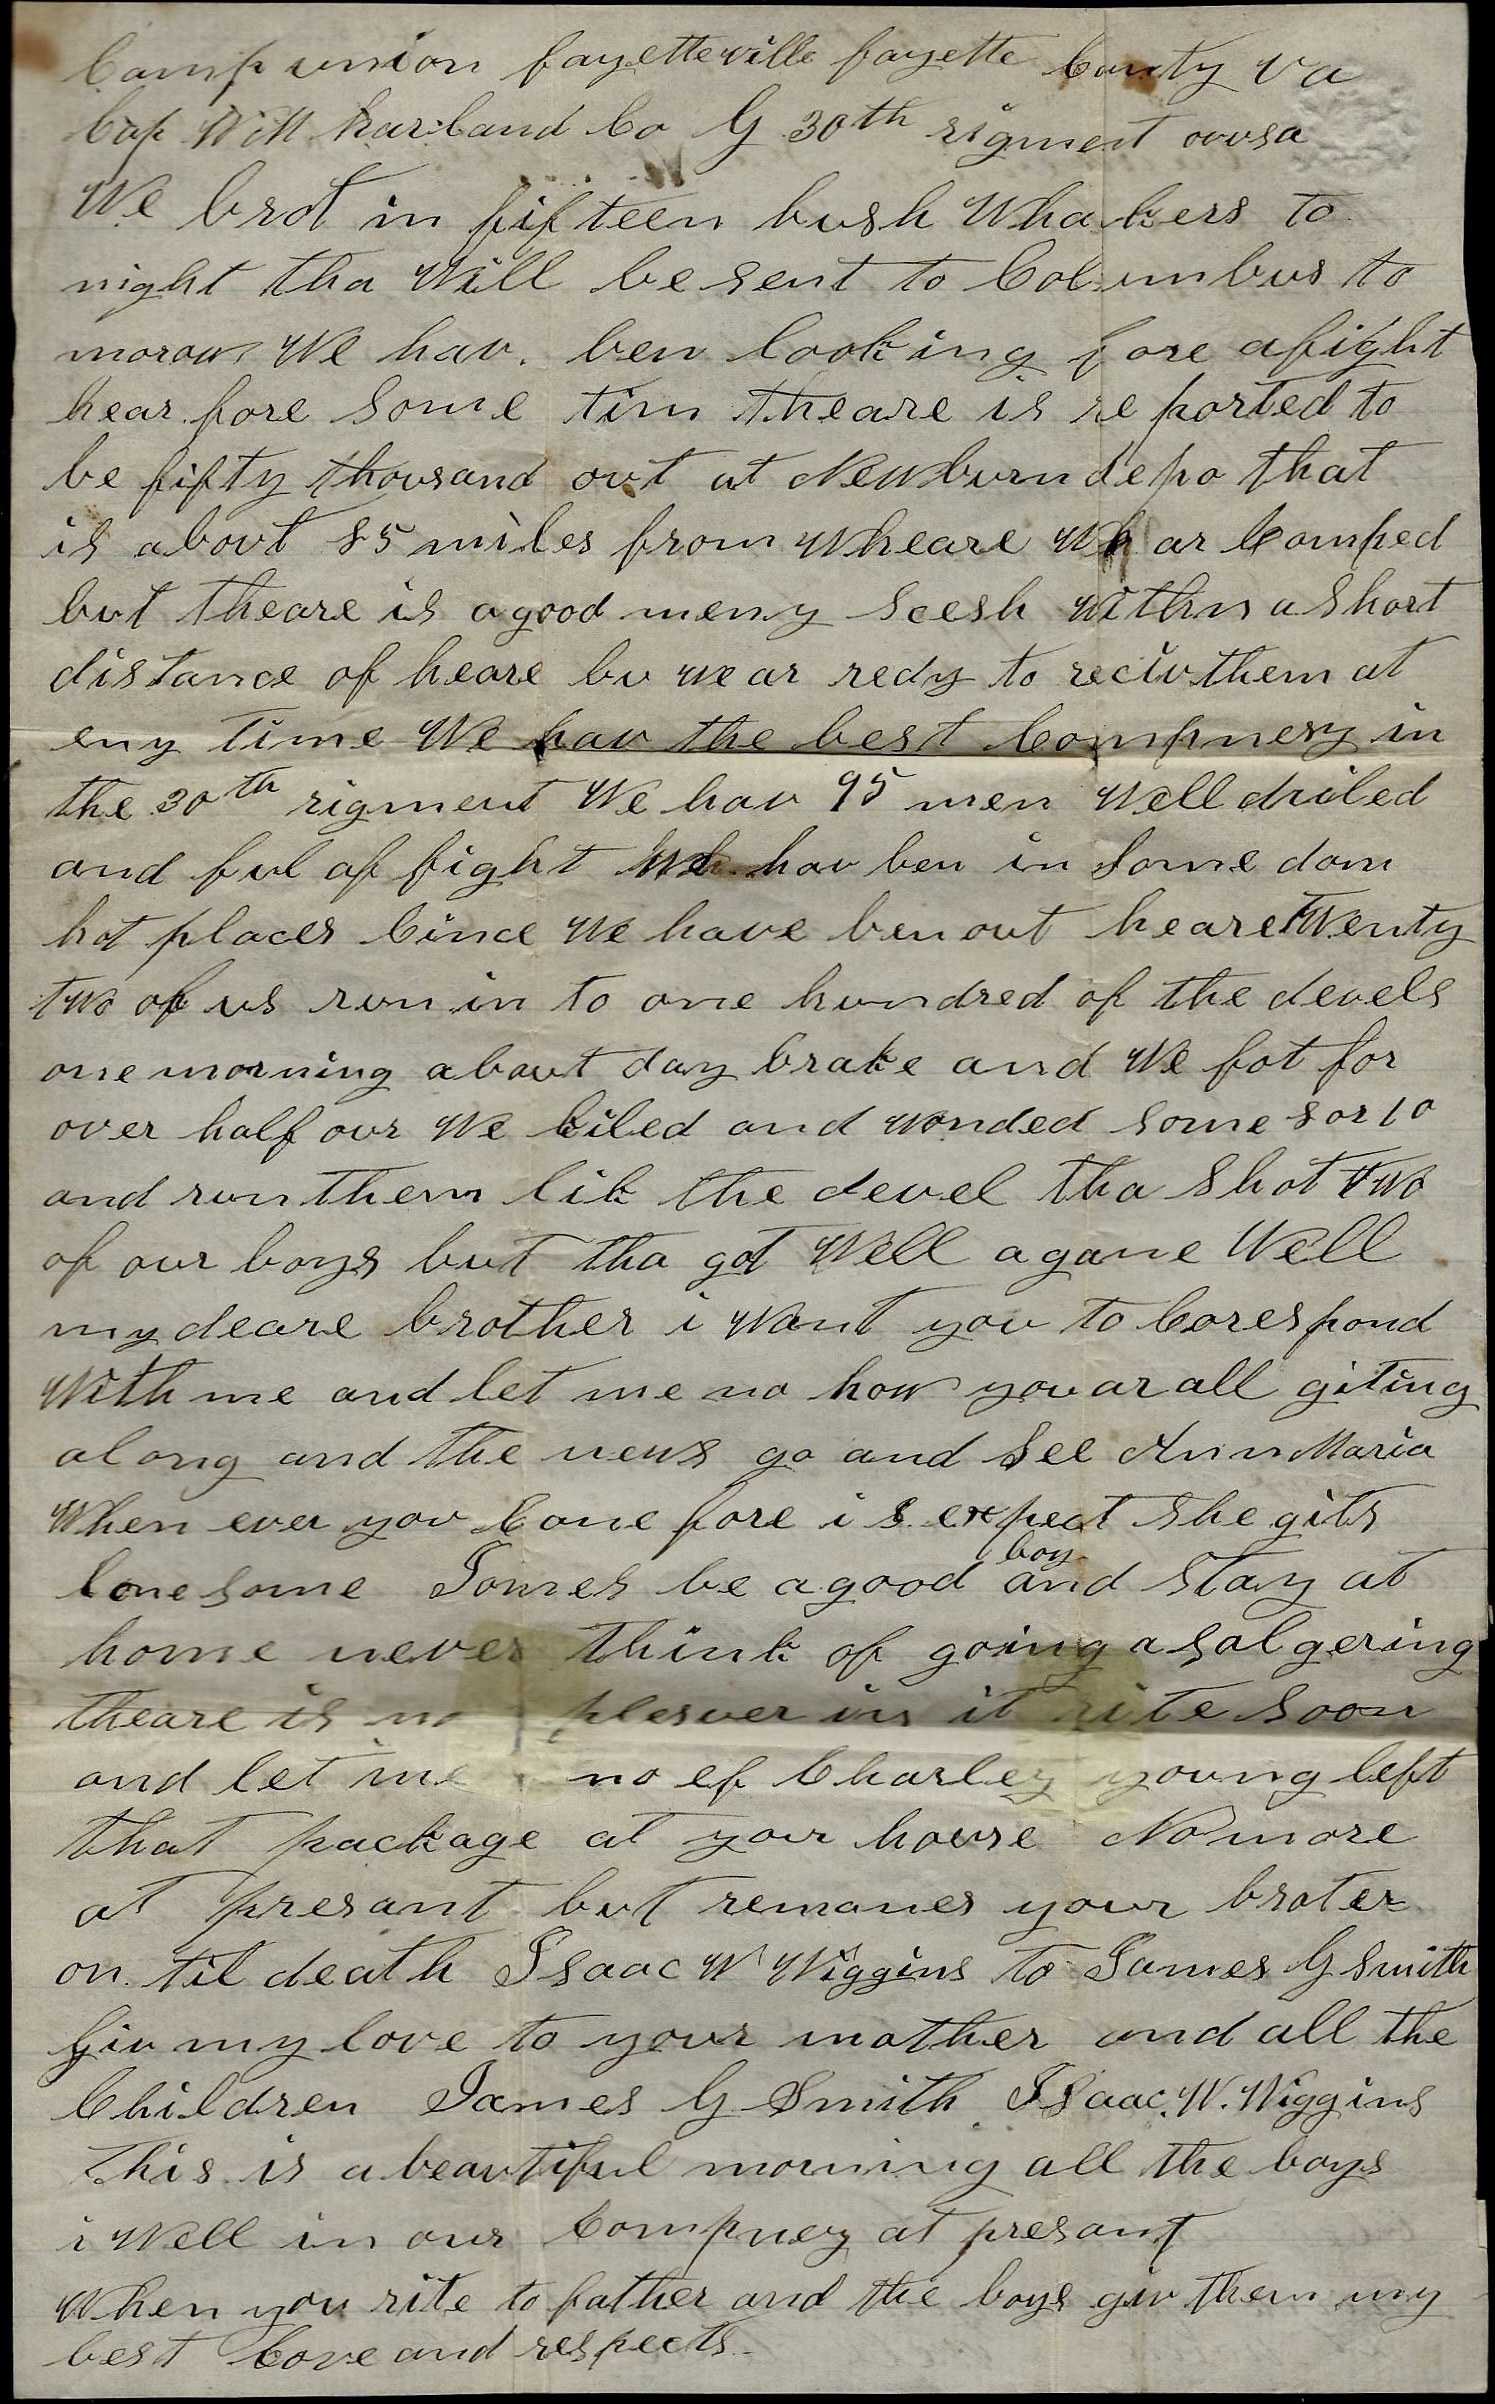 Camp union fayetteville fayette County va
Cap Will harland Co G 30th rigment ovvsa
We brot in fifteen bush Whakers to
night tha Will be sent to Columbus to
morow We hav. ben looking fore afight
hear fore some tim theare is reported to
be fifty thousand out at Newburn depo that
is about 85 miles from wheare We ar Camped
but theare is a good meny secsh within a short
distance of heare bu we ar redy to reciv them at
eny time We hav the best Compnery in
the 30th rigment We hav 95 men Well driled
and ful of fight We hav ben in some dam
hot places Cince We have ben out heare Twenty
two of us run in to one hundred of the devels
one morning about day brake and We fot for
over half our We kiled and wonded some 8 or 10
and run them lik the devel tha shot two
of our boys but tha got Well agane Well
my deare brother i Want you to Corespond
With me and let me no how you ar all giting
along and the news go and see Ann Maria
When ever you Cane fore i s expect she gits
lonesome James be a good boy and stay at
home never think of going a salgering
theare is no plesuer in it rite soon
and let me no ef Charley young left
that package at your house No more
at presant but remanes your broter
on til death Isaac W Wiggins to James G Smith
Giv my love to your mother and all the
Children James G Smith Isaac. W. Wiggins
This is a beautiful morning all the boys
i Well in our Compney at presant
When you rite to father and the boys giv them my
best Love and respects.